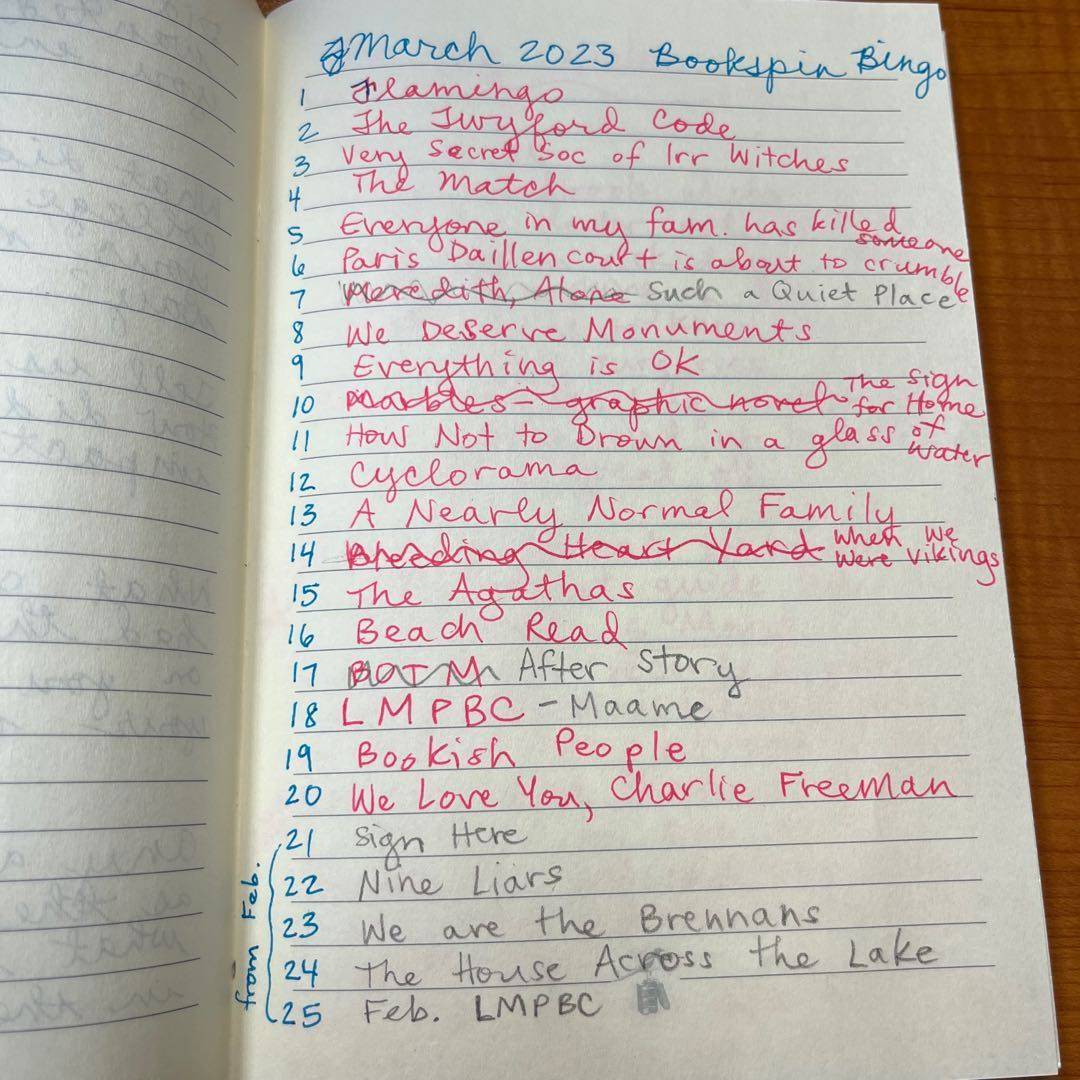 March 2023 Bookspin Bingo
1 Flamingo
2 The Twyford Code
3 Very Secret Soc of Irr Witches
4 The Match
5 Everyone in my fam. has killed someone
6 Paris Daillencourt is about to crumble
7 Meredith, Alone Such a Quiet Place
8 We Deserve Monuments
9 Everything is OK
10 Marbles - graphic novel The Sign for Home
11 How Not to Drown in a glass of water
12 Cyclorama
13 A Nearly Normal Family
14 Bleeding Heart Yard When we were vikings
15 The Agathas
16 Beach Read
17 BOTM After Story
18 LMPBC - Maame
19 Bookish People
20 We Love You, Charlie Freeman
from Feb.
21 Sign Here
22 Nine Liars
23 We are the Brennans
24 The House Across the Lake
25 Feb. LMPBC